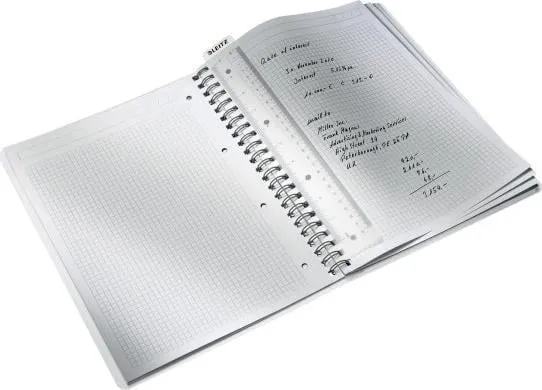 LEITZ
Rate of interest
30. November 2010
Interest 5,12% pa.
mail to
Miller Inc.
Frank Magnus
Advertising & Marketing Services
High Street 39
Peterborough, PE
UK
420,-
96,-
48,-